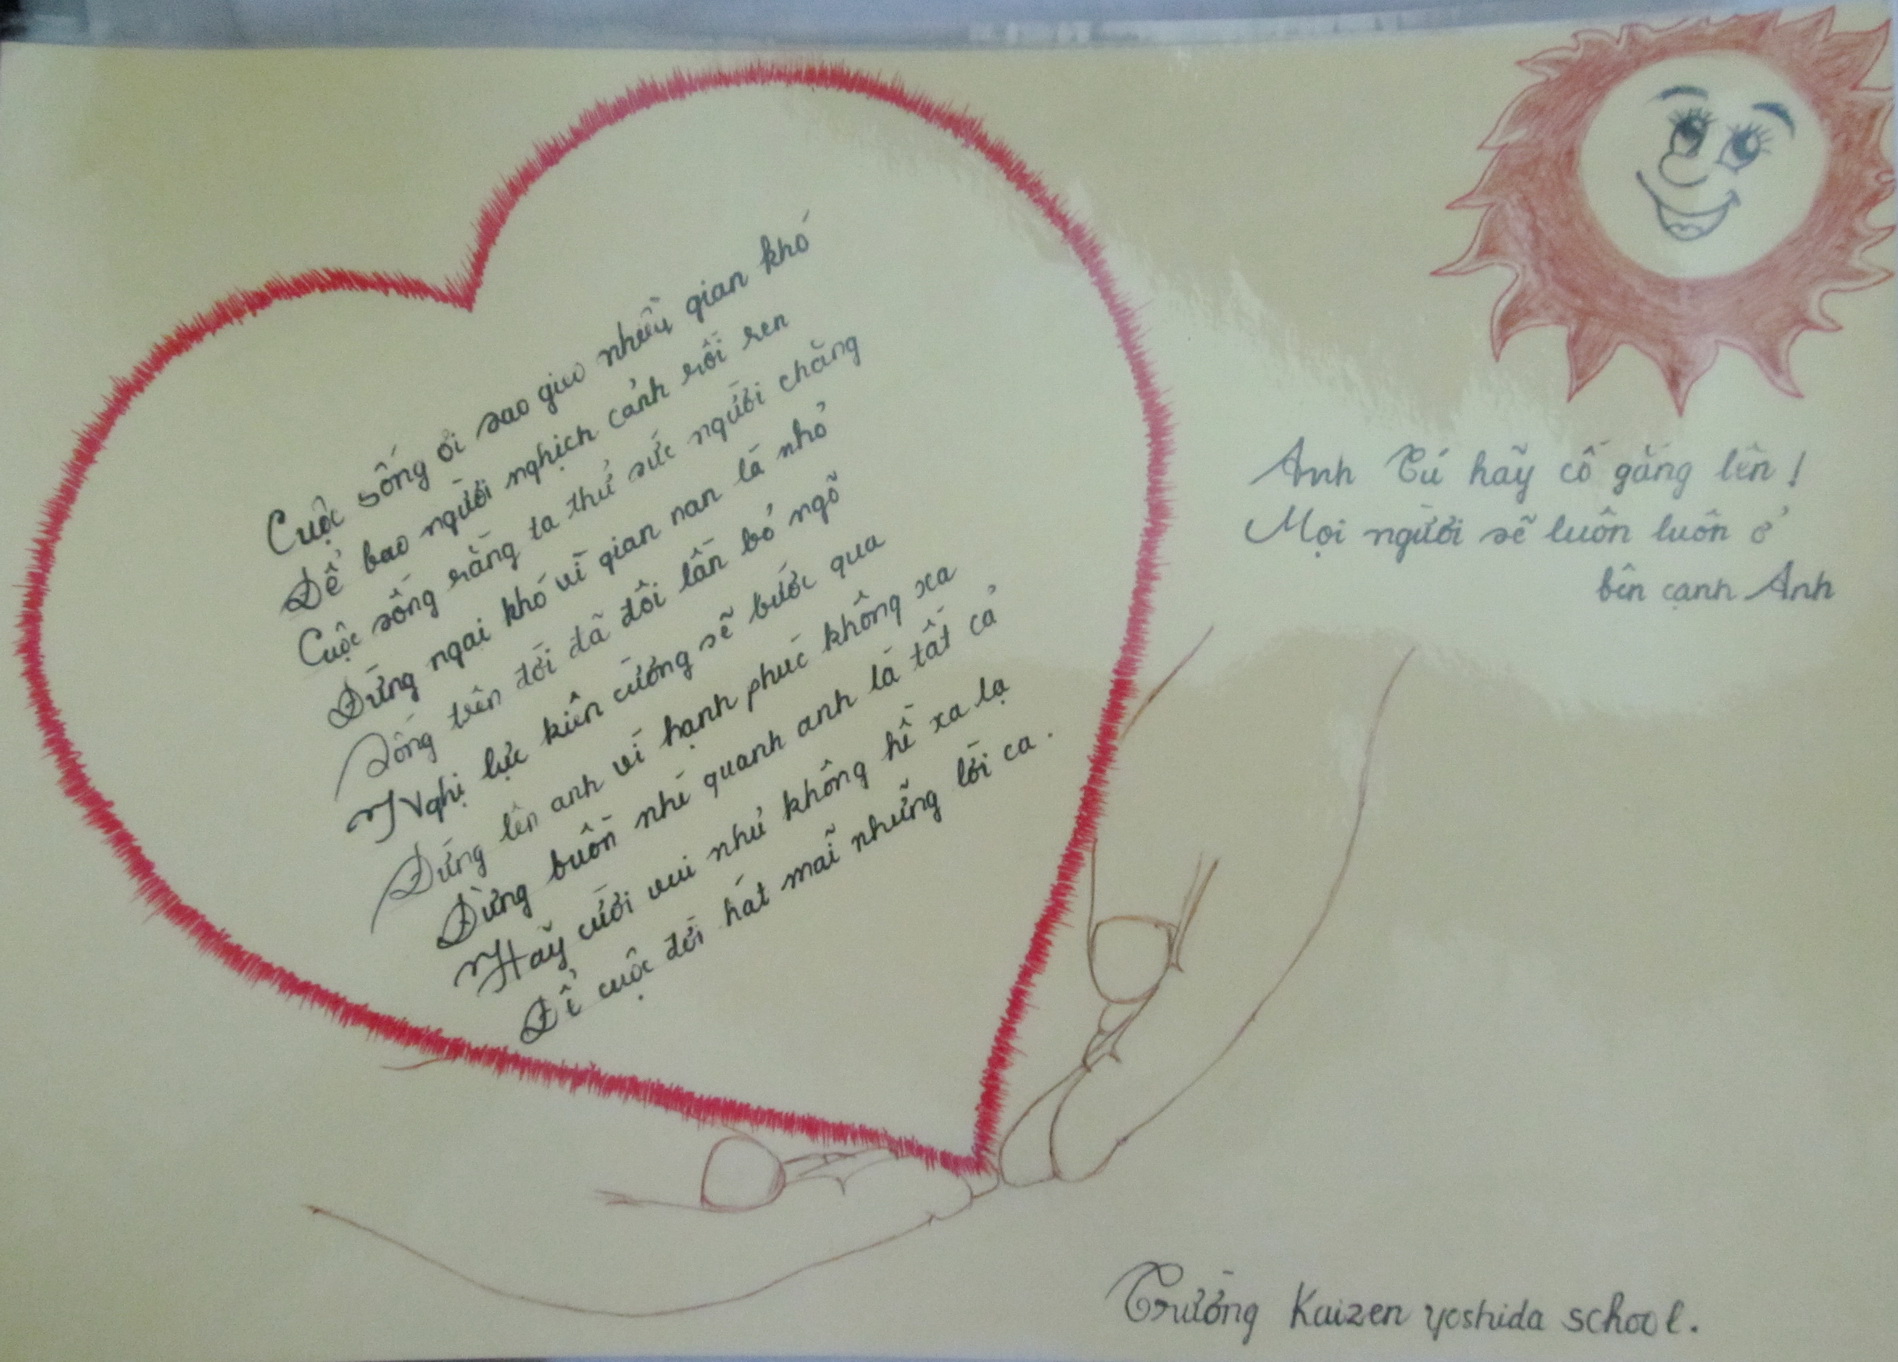 Cuộc sống ơi sao gieo nhiều gian khó
Để bao người nghịch cảnh rối ren
Cuộc sống rằng ta thử sức người chăng
Đừng ngại khó vì gian nan là nhỏ
Sông trên đời đã đôi lần bỏ ngõ
Nghị lực kiên cường sẽ bước qua
Đứng lên anh vì hạnh phúc không xa
Đừng buồn nhé quanh anh là tất cả
Hãy cười vui như không hề xa lạ
Để cuộc đời hát mãi những lời ca.
Anh Tú hãy cố gắng lên!
Mọi người sẽ luôn luôn ở
bên cạnh Anh
Trường Kaizen yoshida school.